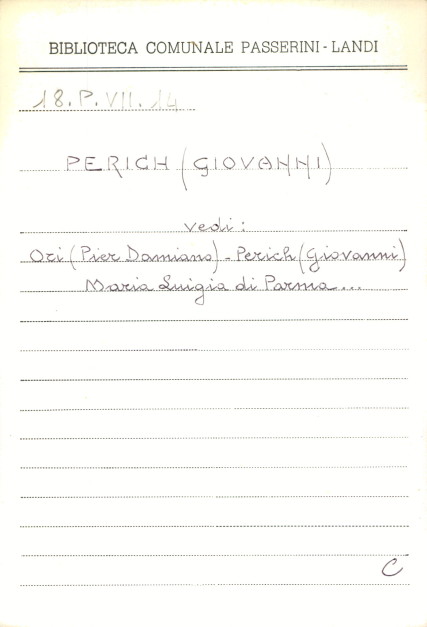 BIBLIOTECA COMUNALE PASSERINI-LANDI
18.P.VII.14
PERICH (GIOVANNI)
vedi:
Ori (Pier Damiano) - Perich (Giovanni)
Maria Luigia di Parma...
C